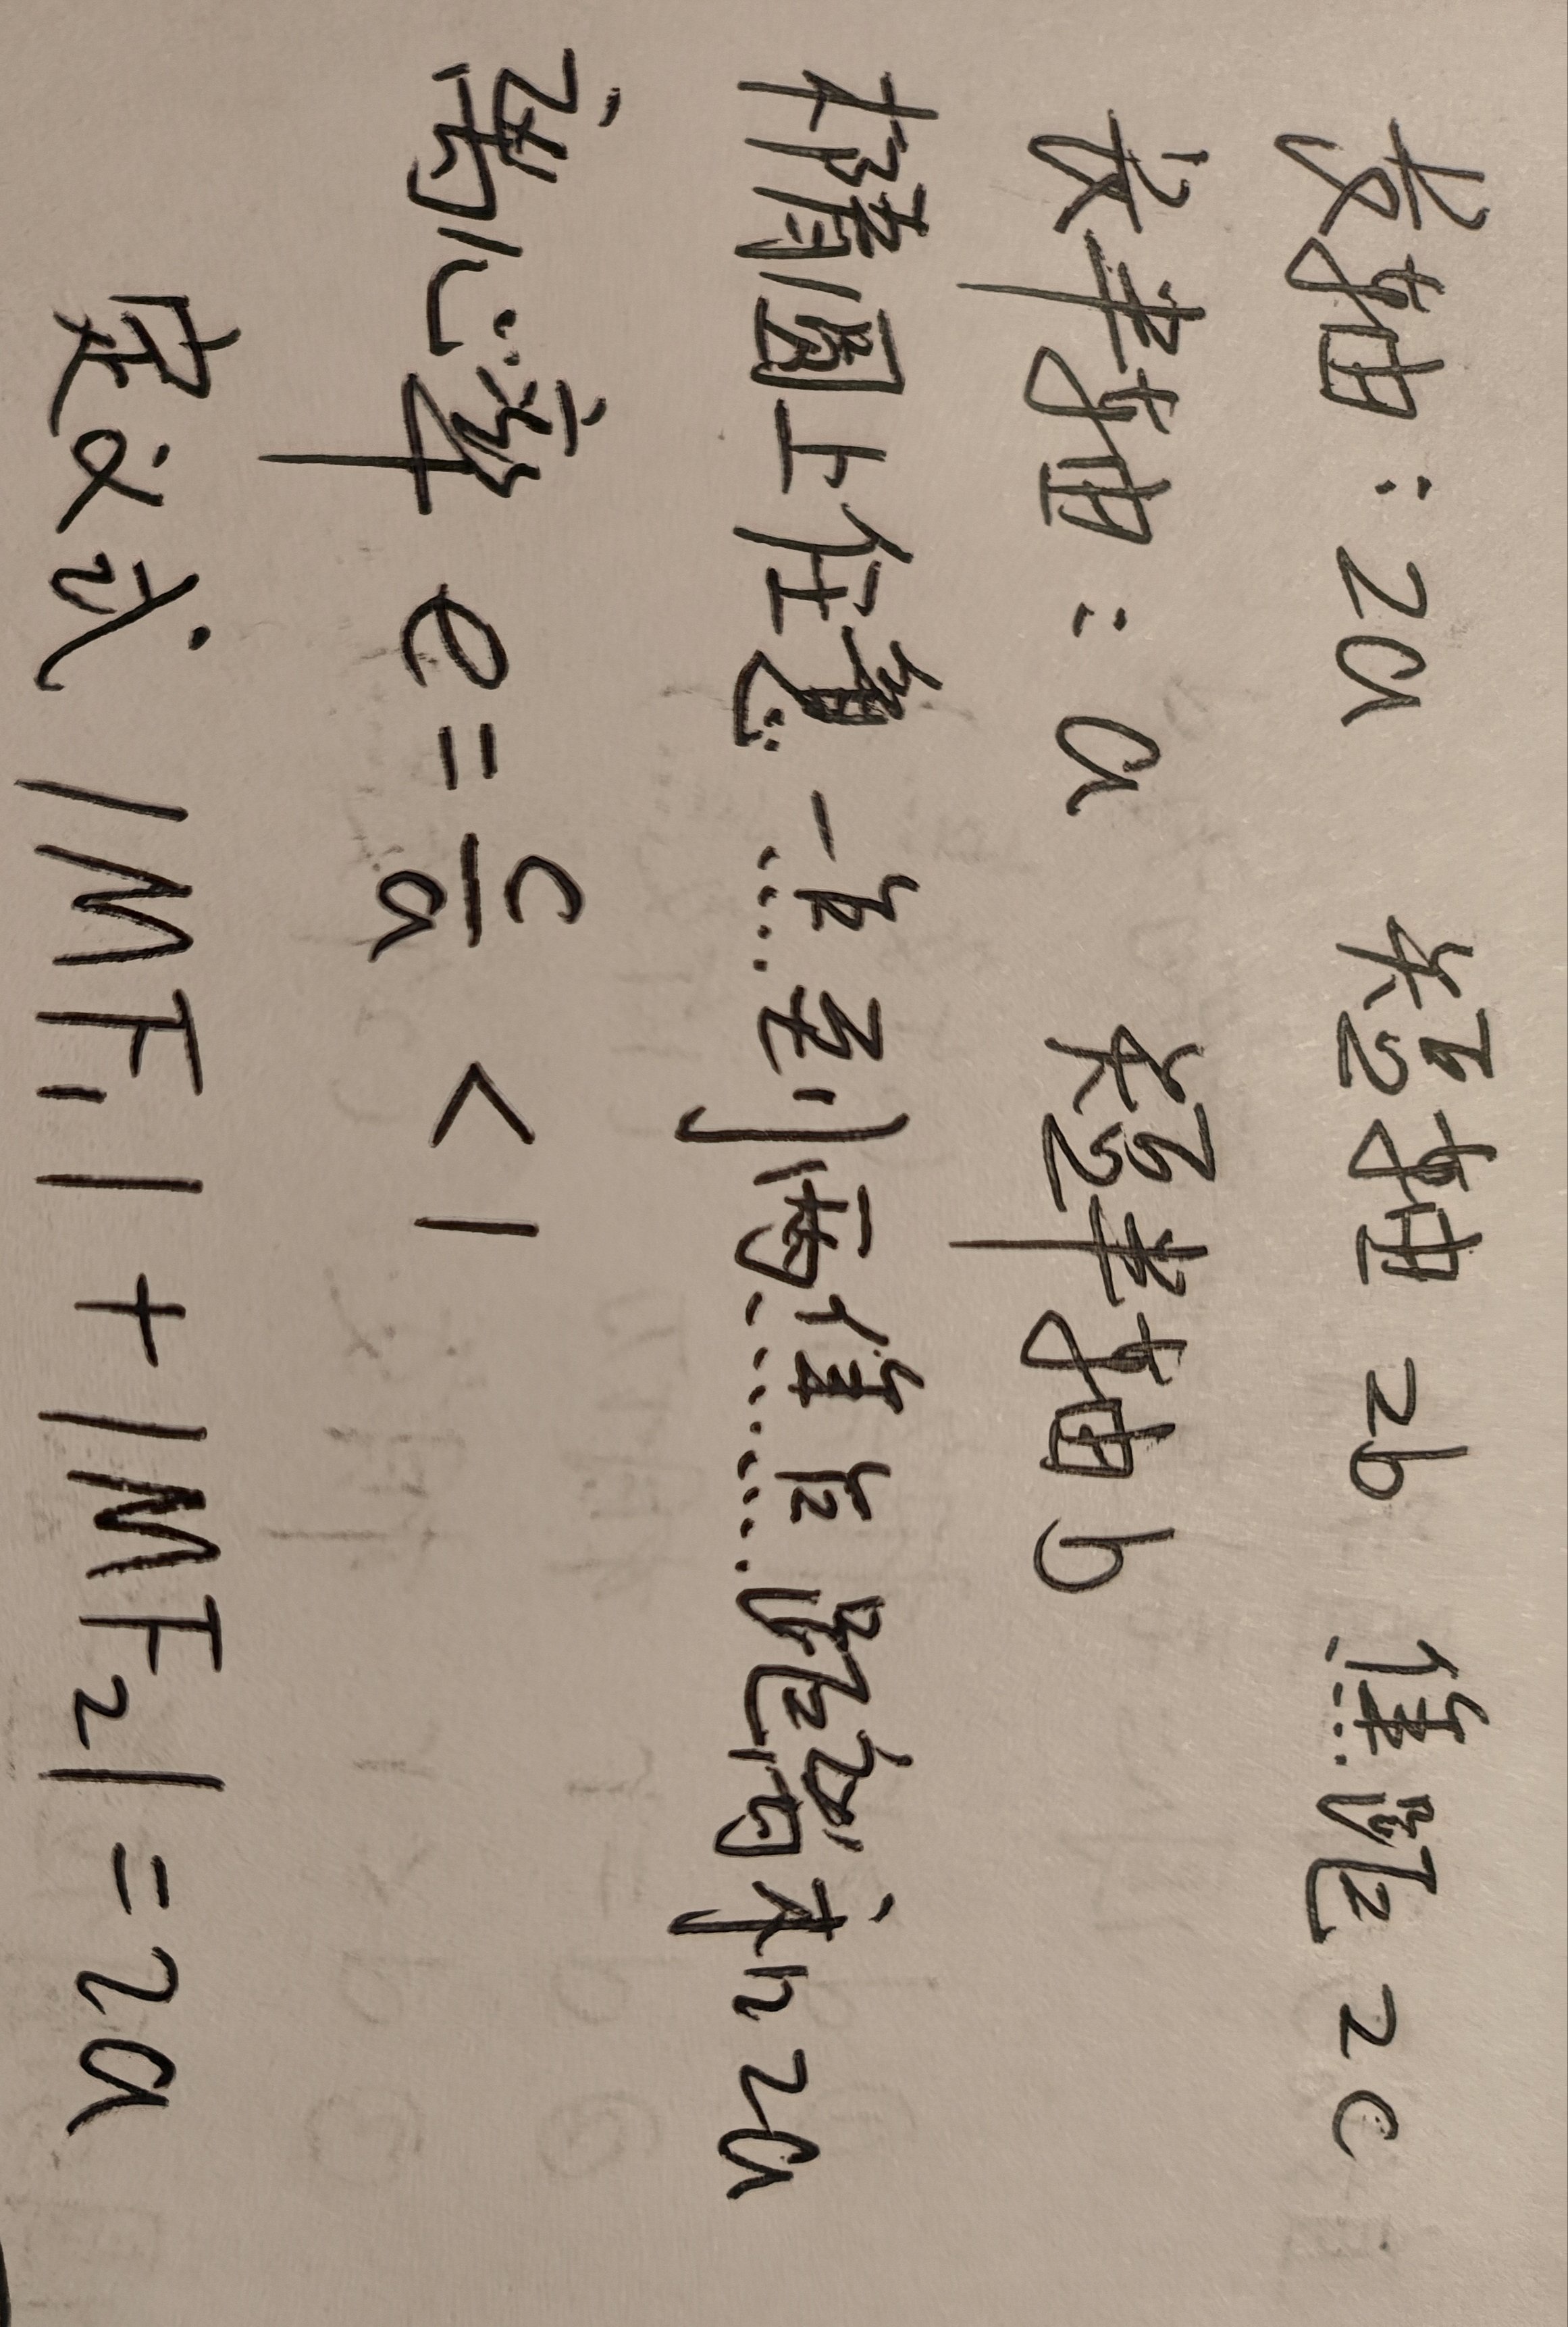 长轴：2a 短轴 2b 焦距 2c
长半轴：a 短半轴 b
椭圆上任意一点到两焦点距离和 2a
离心率 e = c/a < 1
定义式 |MF₁| + |MF₂| = 2a